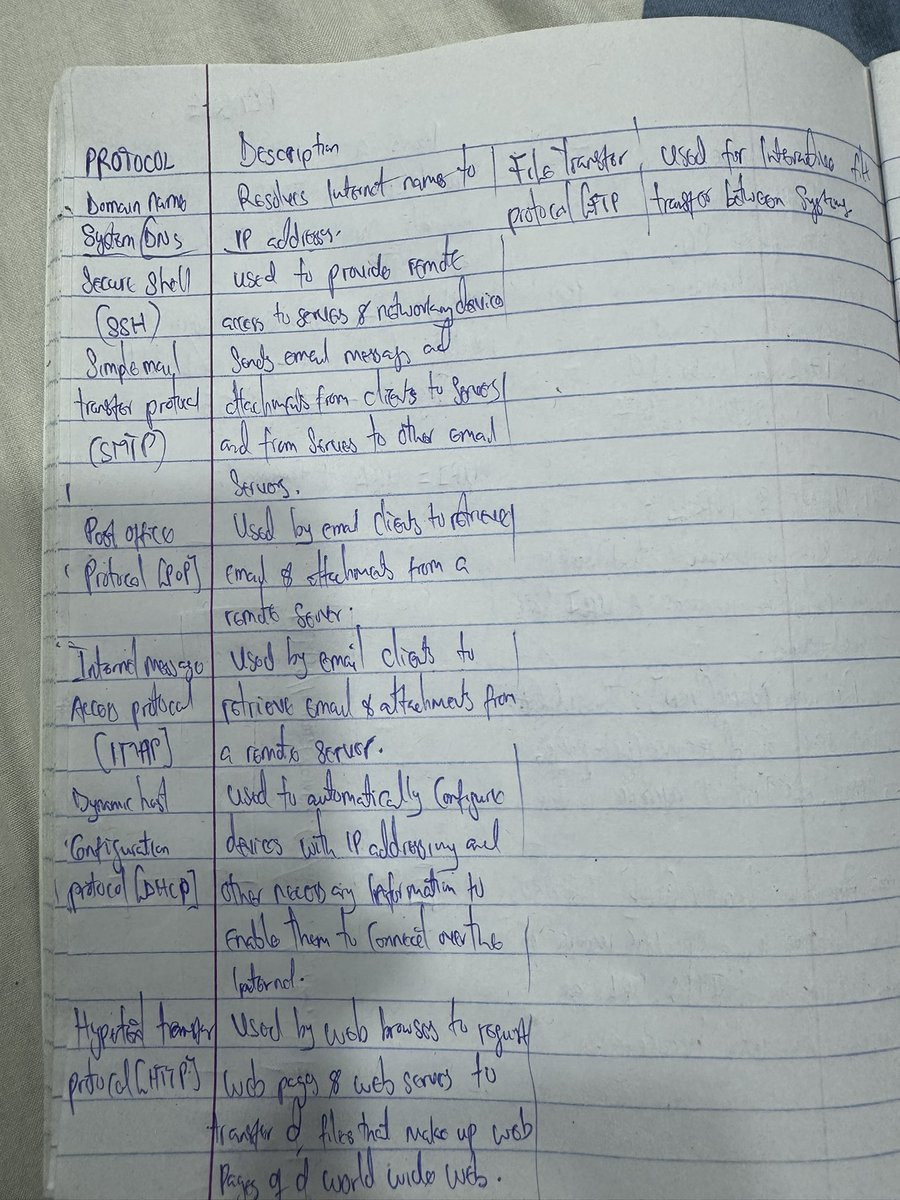 PROTOCOL Description
Domain Name Resolves Internet names to
System (DNS IP addresses.
Secure Shell used to provide remote
(SSH) access to servers & networking device
Simple mail Sends email messages and
transfer protocol attachments from clients to servers
(SMTP) and from servers to other email
servers.
Post office Used by email clients to retrieve
Protocol [POP] email & attachments from a
remote server.
Internet message Used by email clients to
Access protocol retrieve email & attachments from
[IMAP] a remote server.
Dynamic host used to automatically configure
Configuration devices with IP addressing and
protocol [DHCP] other necessary information to
Enable them to Connect over the
Internet.
Hypertext transfer Used by web browsers to request
protocol [HTTP] web pages & web servers to
transfer d files that make up web
Pages of d world wide web.
File Transfer Used for Interactive
protocol [FTP transfer between Systems